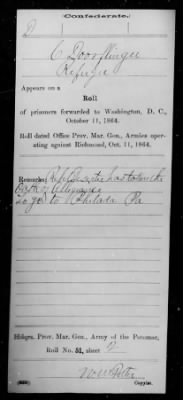 Confederate.
D
C Doorflinger
Refugee
Appears on a
Roll
of prisoners forwarded to Washington, D. C.,
October 11, 1864.
Roll dated Office Prov. Mar. Gen., Armies operating
against Richmond, Oct. 11, 1864.
Remarks: has taken the
Oath of Allegiance
To go to Philada Pa
Hdqrs. Prov. Mar. Gen., Army of the Potomac,
Roll No. 51, sheet 2
Copyist.